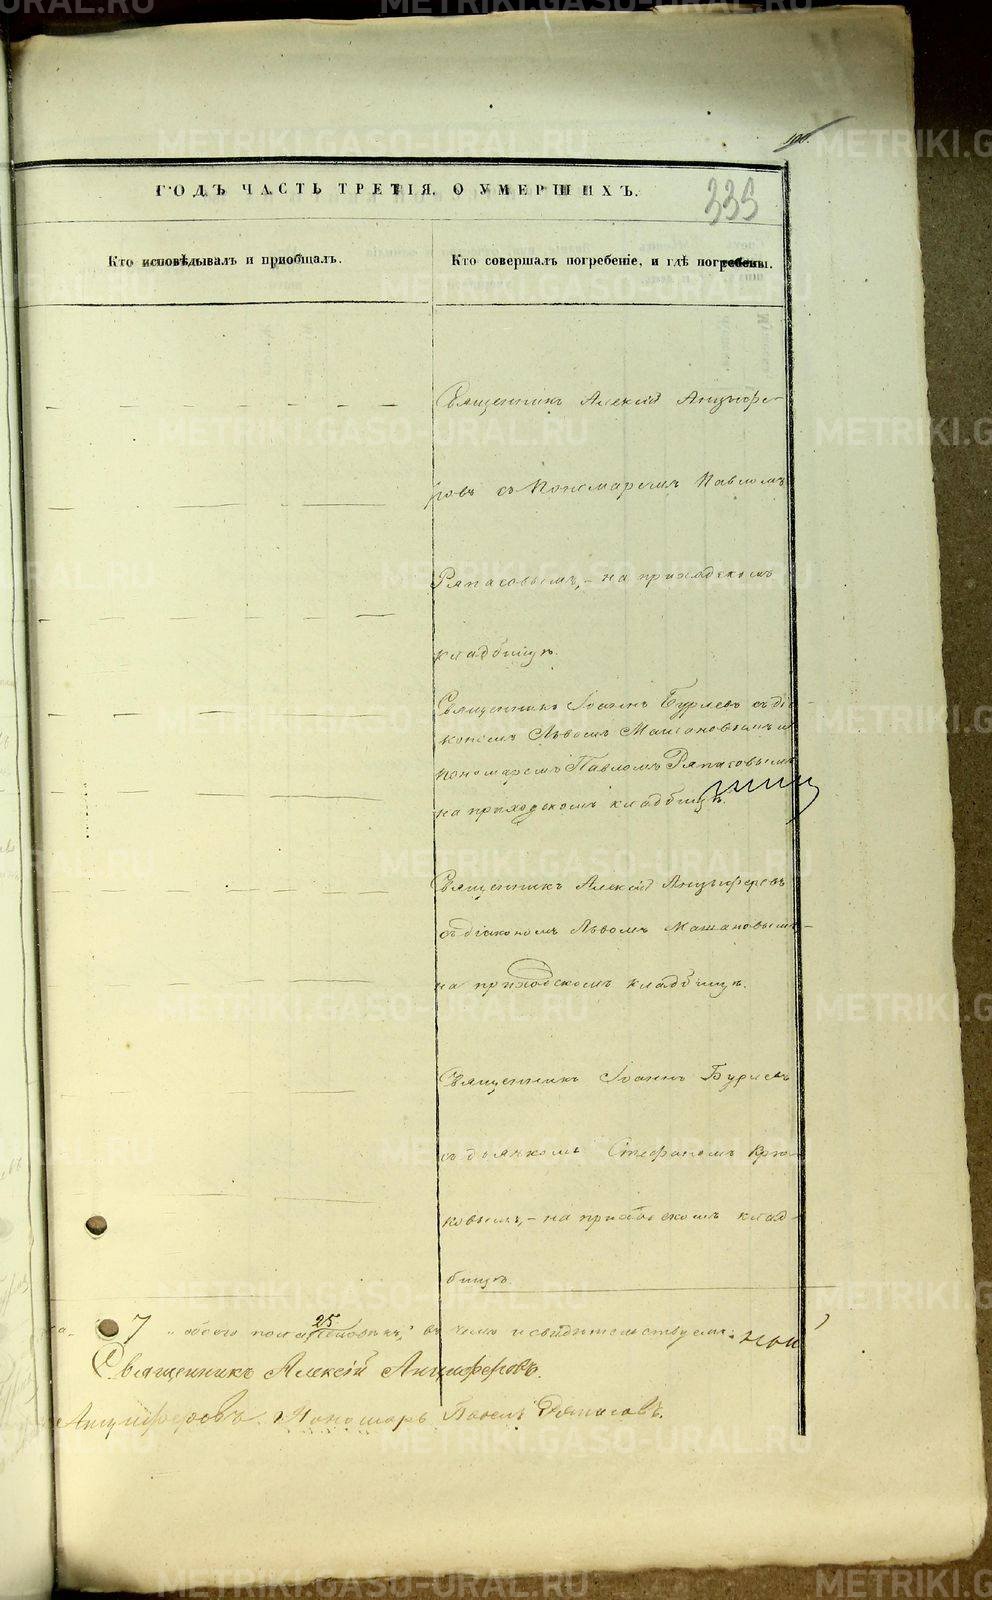 335
ГОДЪ ЧАСТЬ ТРЕТІЯ, О УМЕРШИХЪ.
Кто исповѣдывалъ и пріобщалъ.
Кто совершалъ погребеніе, и гдѣ погребены.
Священникъ Алексій Анцыфе-
ровъ съ Пономаремъ Павломъ
Ряпасовымъ, - на приходскомъ
кладбищѣ.
Священникъ Іоаннъ Бурлевъ съ діа-
кономъ Львомъ Машановымъ и
пономаремъ Павломъ Ряпасовымъ
на приходскомъ кладбищѣ.
Священникъ Алексій Анцыферовъ
съ діакономъ Львомъ Машановымъ -
на приходскомъ кладбищѣ.
Священникъ Іоаннъ Бурлевъ
съ дьячкомъ Стефаномъ Крю-
ковымъ, - на приходскомъ клад-
бищѣ.
25.
7 обоего пола въ чемъ и свидѣтельствуемъ.
Священникъ Алексій Анциферовъ.
Анциферовъ. Пономарь Павелъ Ряпасовъ.
METRIKI.GASO-URAL.RU